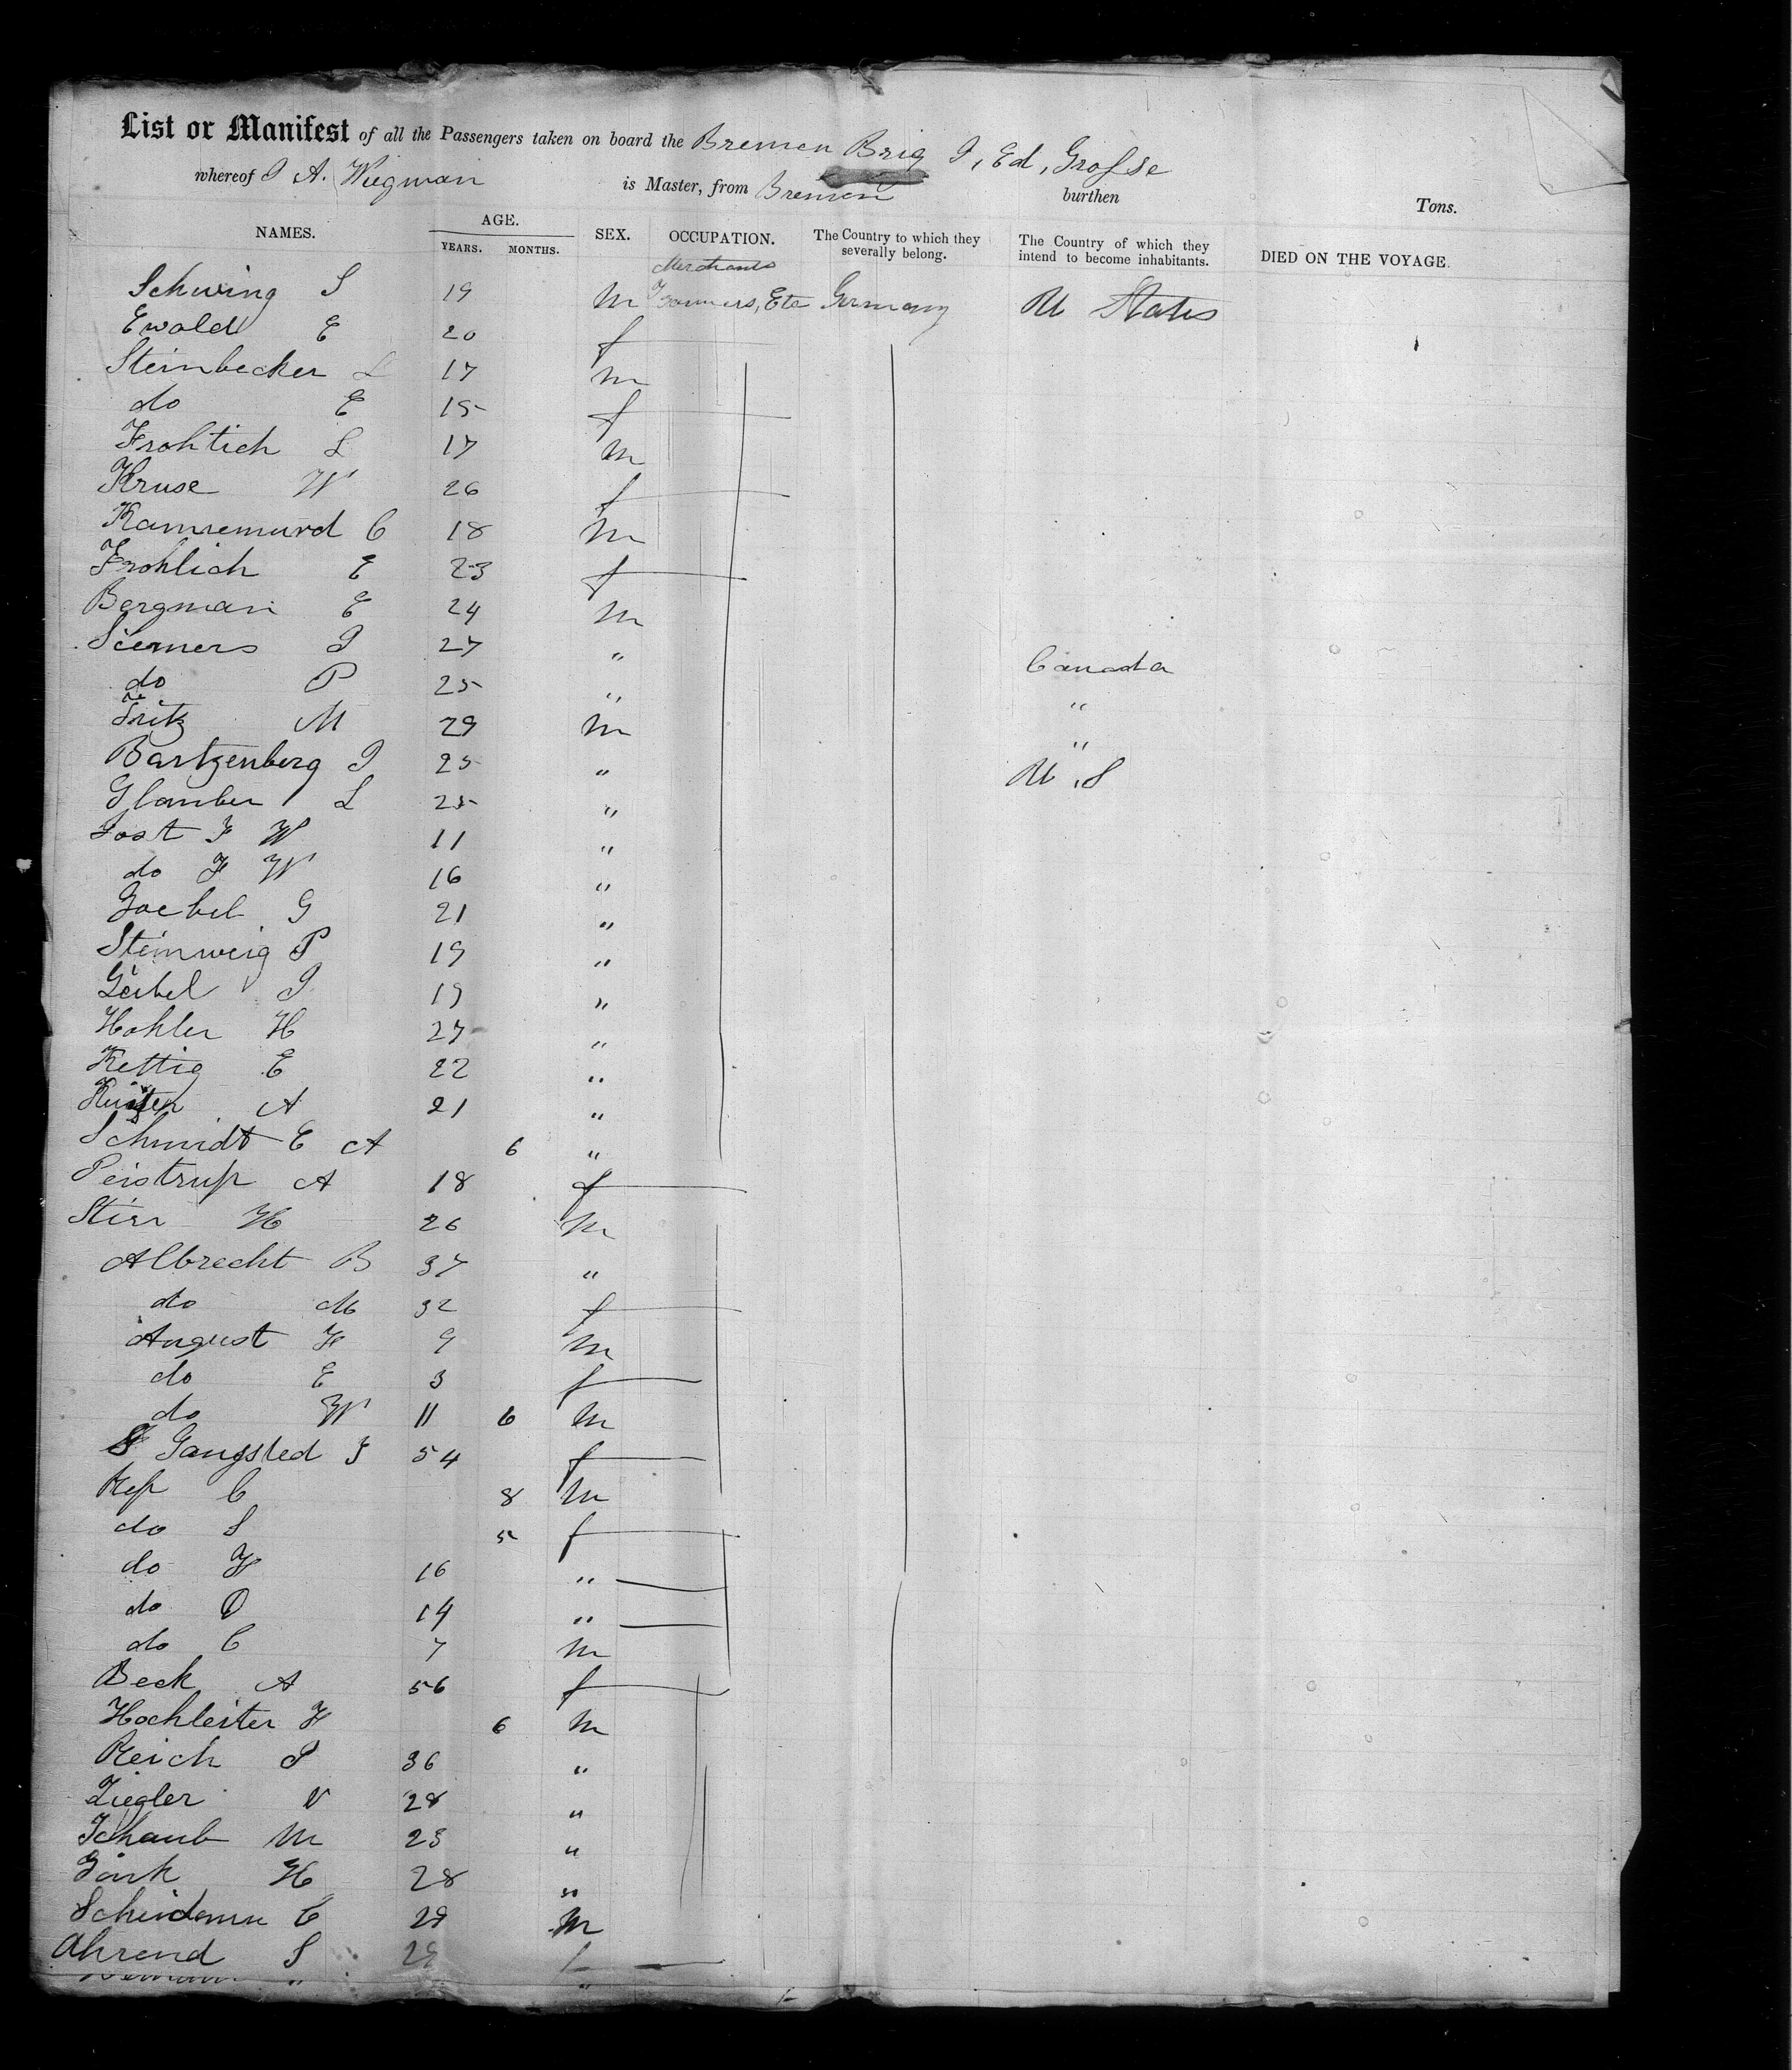 List or Manifest of all the Passengers taken on board the Bremen Brig J, Ed, Grosse
whereof J A. Wiegman is Master, from Bremen burthen Tons.
NAMES. AGE. YEARS. MONTHS. SEX. OCCUPATION. The Country to which they severally belong. The Country of which they intend to become inhabitants. DIED ON THE VOYAGE.
Merchants
Schwing S 19 m Farmers, Etc Germany U States
Ewald E 20 f
Steinbecker L 17 m
do E 15 f
Frohtich L 17 m
Kruse W 26 f
C 18 m
Frohlich E 23 f
Bergman E 24 m
Siemers J 27 " Canada
do P 25 " "
Fritz M 29 m "
Bartzenberg J 25 " U.S
Glamber L 25 "
Jost F W 11 "
do F W 16 "
Goebel G 21 "
Steinweig P 19 "
Geibel J 19 "
Hohler H 27 "
Rettig E 22 "
A 21 "
Schmidt E A 6 "
Peistrup A 18 f
Stier H 26 m
Albrecht B 37 "
do M 32 f
August F 9 m
do E 3 f
do W 11 6 m
Gangsted J 54 f
Kep C 8 m
do S 5 f
do F 16 "
do O 14 "
do C 7 m
Beck A 56 f
Hochleiter F 6 m
Reich P 36 "
Ziegler V 28 "
Schaub M 23 "
H 28 "
C 29 m
Ahrend S 28 f
" "